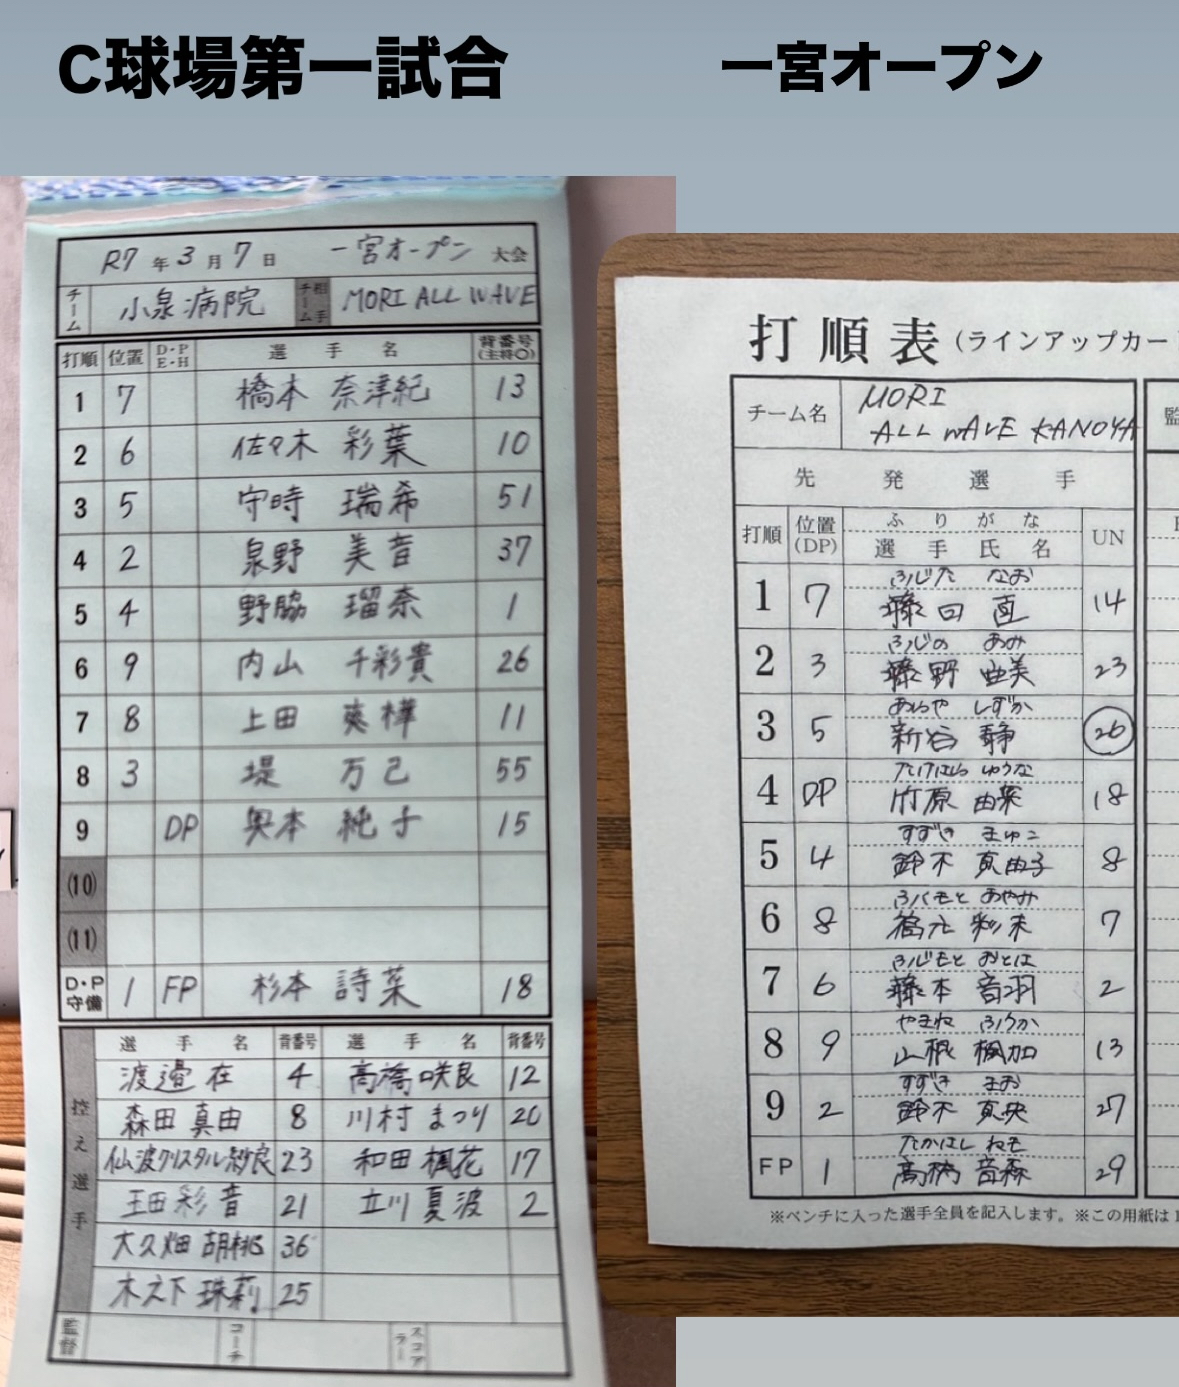 C球場第一試合
一宮オープン
R7年3月7日 一宮オープン 大会
チーム 小泉病院 相手チーム MORI ALL WAVE
打順 位置 D・P E・H 選手名 背番号(主将○)
1 7 橋本 奈津紀 13
2 6 佐々木 彩葉 10
3 5 守時 瑞希 51
4 2 泉野 美音 37
5 4 野脇 瑠奈 1
6 9 内山 千彩貴 26
7 8 上田 爽樺 11
8 3 堤 万己 55
9 DP 奥本 純子 15
(10)
(11)
D・P守備 1 FP 杉本 詩菜 18
控え選手
選手名 背番号 選手名 背番号
渡邉 在 4 髙橋 咲良 12
森田 真由 8 川村 まつり 20
仙波クリスタル紗良 23 和田 楓花 17
玉田 彩音 21 立川 夏波 2
大久畑 胡桃 36
木之下 珠莉 25
監督 コーチ スコアラー
打順表(ラインアップカー
チーム名 MORI
ALL WAVE KANOYA
先発選手
打順 位置(DP) ふりがな 選手氏名 UN
ふじた なお
1 7 藤田 直 14
ふじの あみ
2 3 藤野 亜美 23
あらや しずか
3 5 新谷 静 26
たけはら ゆうな
4 DP 竹原 由菜 18
すずき まゆこ
5 4 鈴木 真由子 8
ふくもと あやみ
6 8 福元 彩未 7
ふじもと おとは
7 6 藤本 音羽 2
やまね ふうか
8 9 山根 楓加 13
すずき まお
9 2 鈴木 真央 27
たかはし ねも
FP 1 髙橋 音森 29
※ベンチに入った選手全員を記入します。※この用紙は